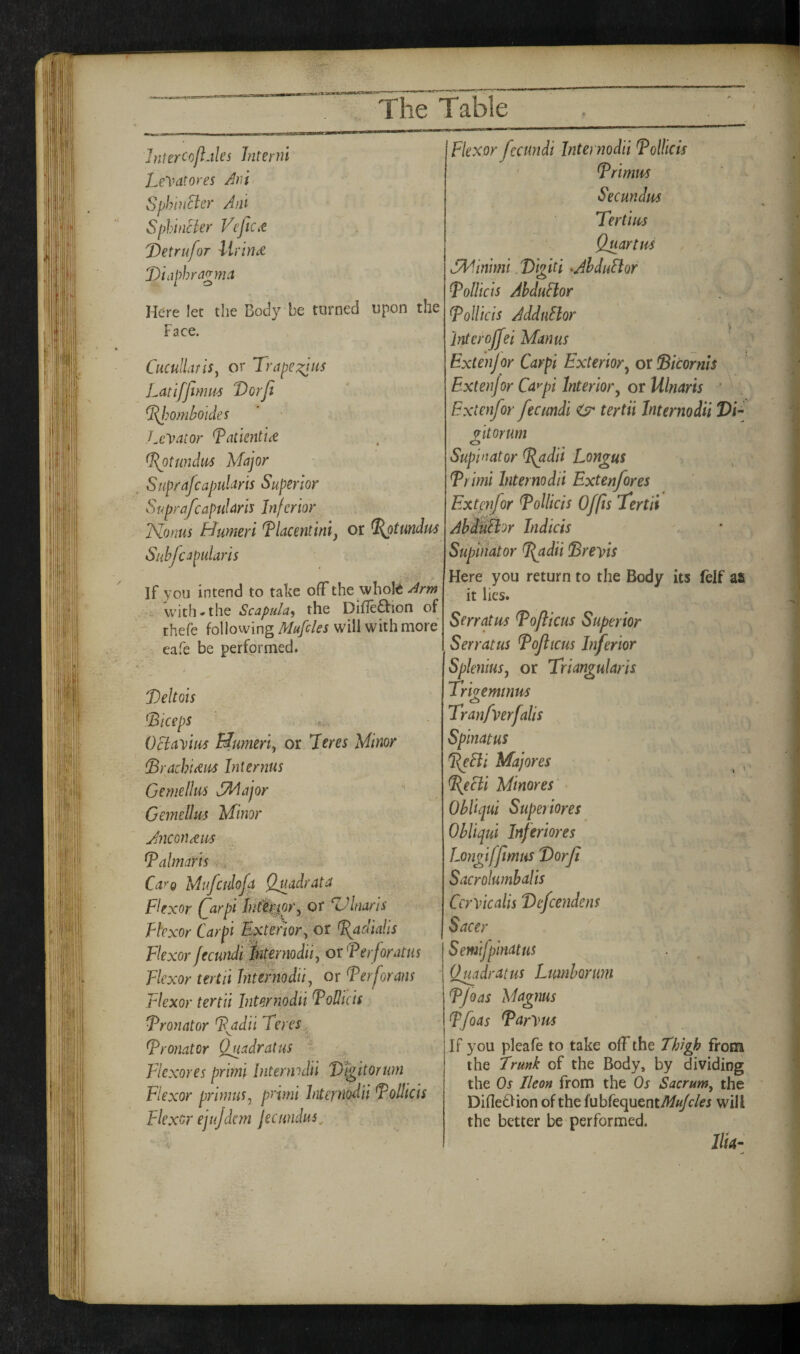 The Table
Intercoſtales Interni
Levatores Ani
Sphincter Ani
Sphincter Veſicæ
Detruſor Urinæ
Diaphragma
Here let the Body be turned upon the
Face.
Cucullaris, or Trapezius
Latiſſimus Dorſi
Rhomboides
Levator Patientiæ
Rotundus Major
Supraſcapularis Superior
Supraſcapularis Inferior
Nonus Humeri Placentini, or Rotundus
Subſcapularis
If you intend to take off the whole Arm
with the Scapula, the Diſſection of
theſe following Muſcles will with more
eaſe be performed.
Deltois
Biceps
Octavius Humeri, or Teres Minor
Brachiæus Internus
Gemellus Major
Gemellus Minor
Anconæus
Palmaris
Caro Muſculoſa Quadrata
Flexor Carpi Interior, or Ulnaris
Flexor Carpi Exterior, or Radialis
Flexor ſecundi Internodii, or Perforatus
Flexor tertii Internodii, or Perforans
Flexor tertii Internodii Pollicis
Pronator Radii Teres
Pronator Quadratus
Flexores primi Internodii Digitorum
Flexor primus, primi Internodii Pollicis
Flexor ejuſdem ſecundus
Flexor ſecundi Internodii Pollicis
Primus
Secundus
Tertius
Quartus
Minimi Digiti Abductor
Pollicis Abductor
Pollicis Adductor
Interoſſei Manus
Extenſor Carpi Exterior, or Bicornis
Extenſor Carpi Interior, or Ulnaris
Extenſor ſecundi & tertii Internodii Di-
gitorum
Supinator Radii Longus
Primi Internodii Extenſores
Extenſor Pollicis Oſſis Tertii
Abductor Indicis
Supinator Radii Brevis
Here you return to the Body its ſelf as
it lies.
Serratus Poſticus Superior
Serratus Poſticus Inferior
Splenius, or Triangularis
Trigeminus
Tranſverſalis
Spinatus
Recti Majores
Recti Minores
Obliqui Superiores
Obliqui Inferiores
Longiſſimus Dorſi
Sacrolumbalis
Cervicalis Deſcendens
Sacer
Semiſpinatus
Quadratus Lumborum
Pſoas Magnus
Pſoas Parvus
If you pleaſe to take off the Thigh from
the Trunk of the Body, by dividing
the Os Ileon from the Os Sacrum, the
Diſſection of the ſubſequent Muſcles will
the better be performed.
Ilia-